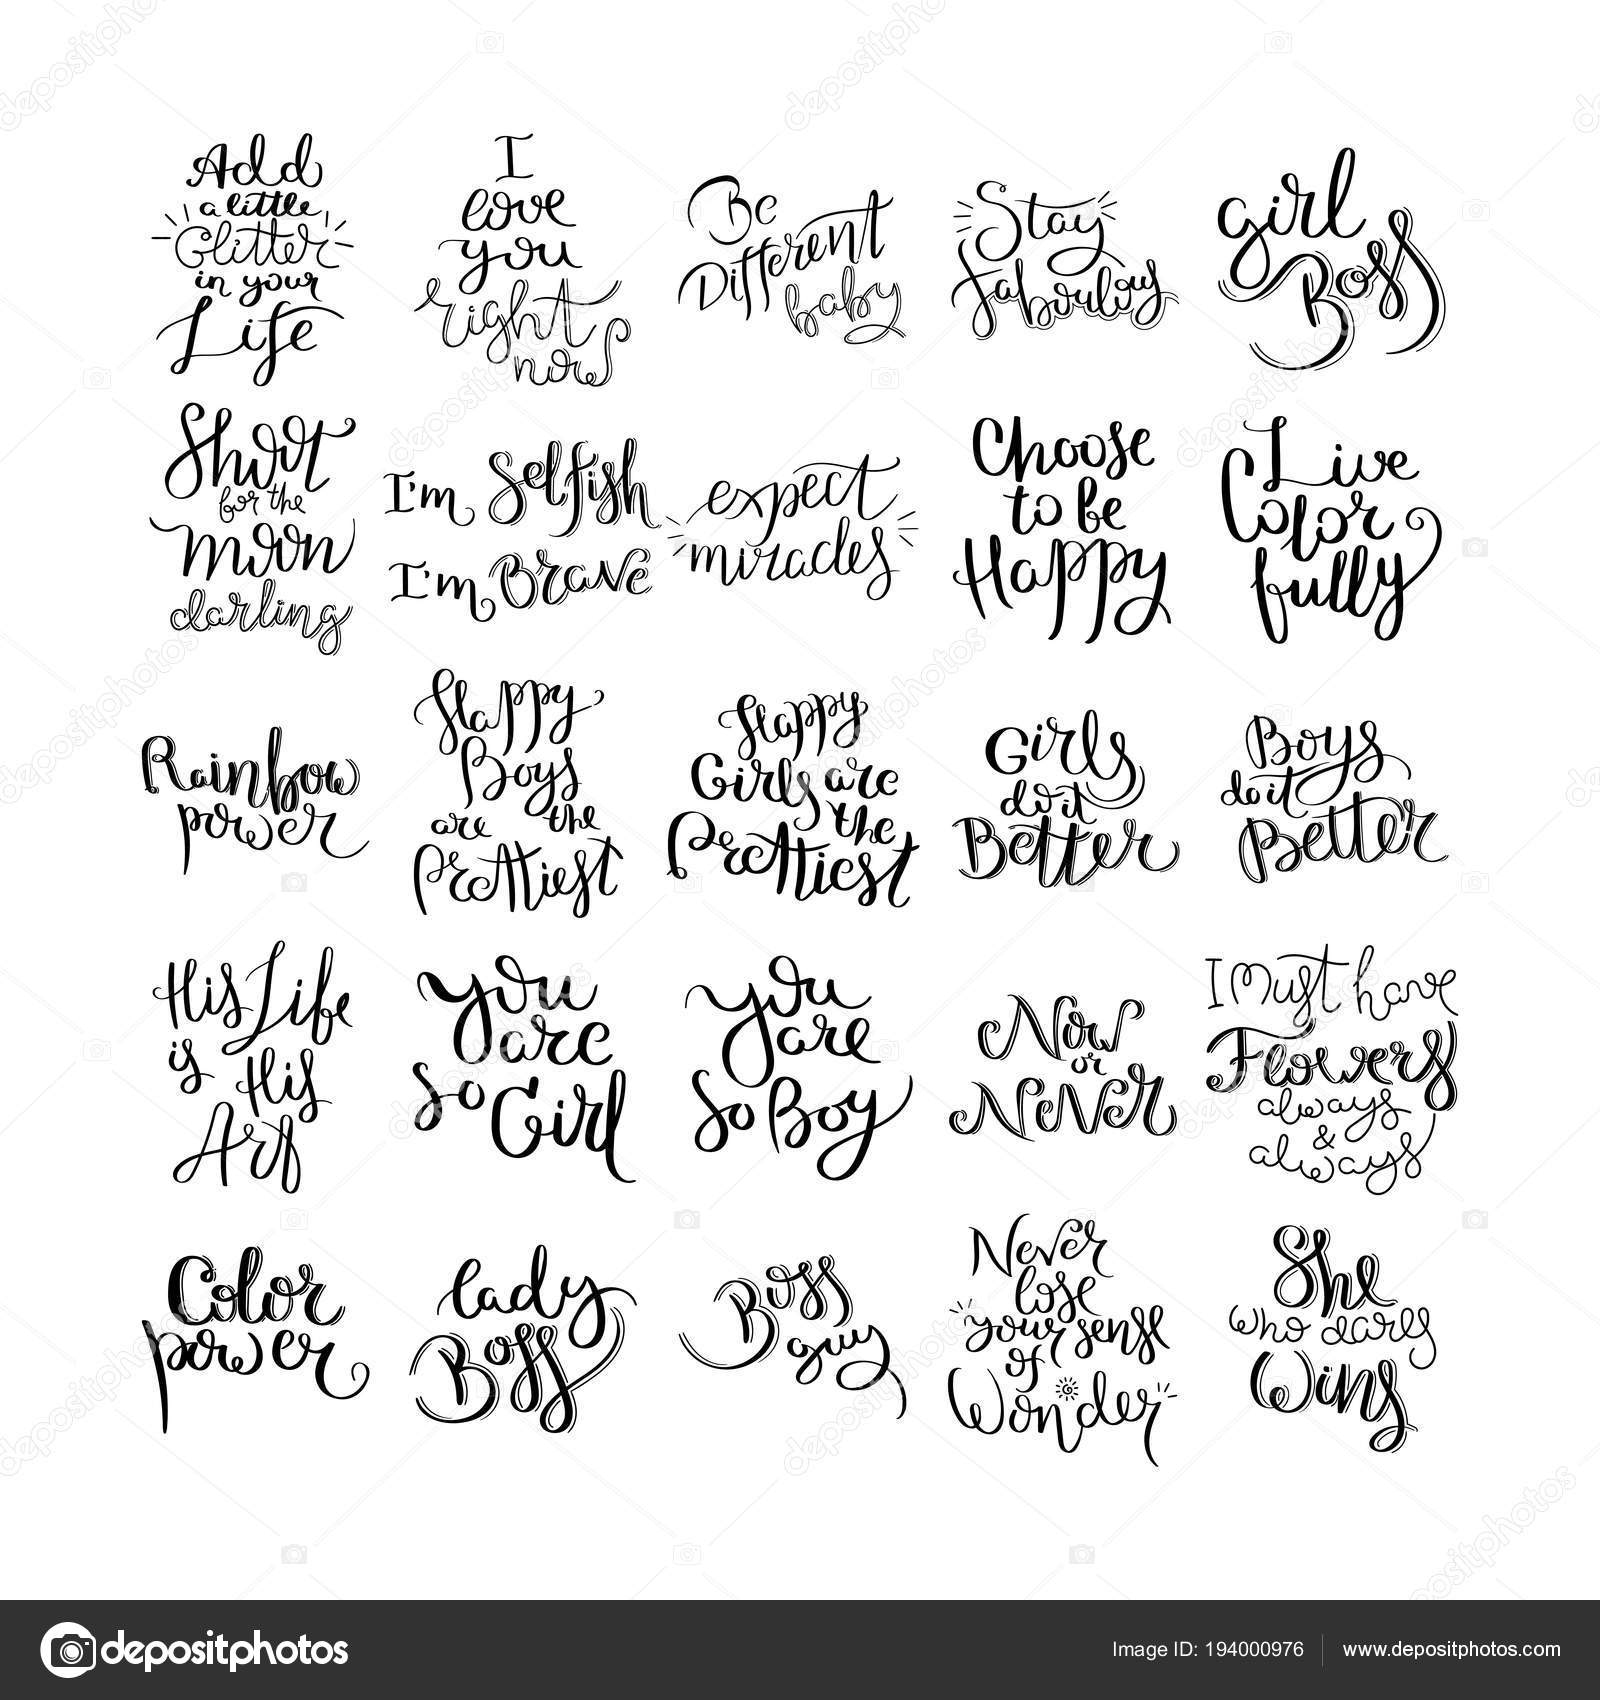 Add
a little
Glitter
in your
Life
I
love
you
right
now
Be
Different
baby
Stay
Faboulous
girl
Boss
Shoot
for the
moon
darling
I'm Selfish
I'm Brave
expect
miracles
Choose
to be
Happy
Live
Color
fully
Rainbow
power
Happy
Boys
are the
Prettiest
Happy
Girls are
the
Prettiest
Girls
do it
Better
Boys
do it
Better
His Life
is His
Art
You
are
so Girl
You
are
So Boy
Now
or
Never
I Must have
Flowers
always
&
always
Color
power
Lady
Boss
Boss
guy
Never
lose
your sense
of
Wonder
She
who dares
Wins
depositphotos
Image ID: 194000976
www.depositphotos.com